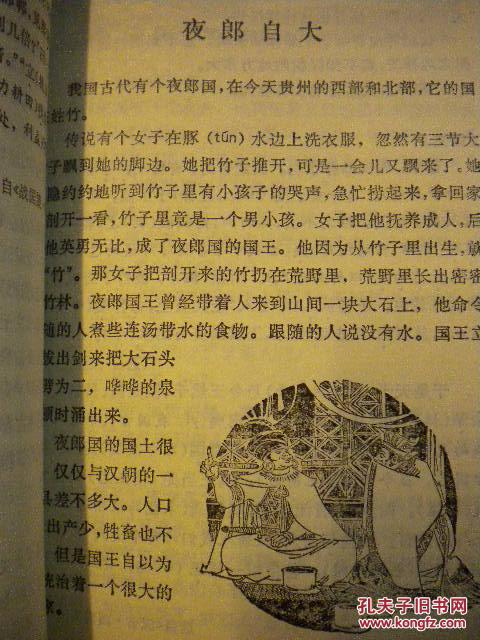 夜郎自大
我国古代有个夜郎国，在今天贵州的西部和北部，它的国
姓竹。
传说有个女子在豚（tún）水边上洗衣服，忽然有三节大
子飘到她的脚边。她把竹子推开，可是一会儿又飘来了。她
隐约约地听到竹子里有小孩子的哭声，急忙捞起来，拿回家
剖开一看，竹子里竟是一个男小孩。女子把他抚养成人，后
他英勇无比，成了夜郎国的国王。他因为从竹子里出生，就
“竹”。那女子把剖开来的竹扔在荒野里，荒野里长出密密
竹林。夜郎国王曾经带着人来到山间一块大石上，他命令
随的人煮些连汤带水的食物。跟随的人说没有水。国王立
拔出剑来把大石头
劈为二，哗哗的泉
顿时涌出来。
夜郎国的国土很
仅仅与汉朝的一
县差不多大。人口
出产少，牲畜也不
但是国王自以为
统治着一个很大的
家。
到几倍
力耕田
处，利
自《战国策
孔夫子旧书网
www.kongfz.com